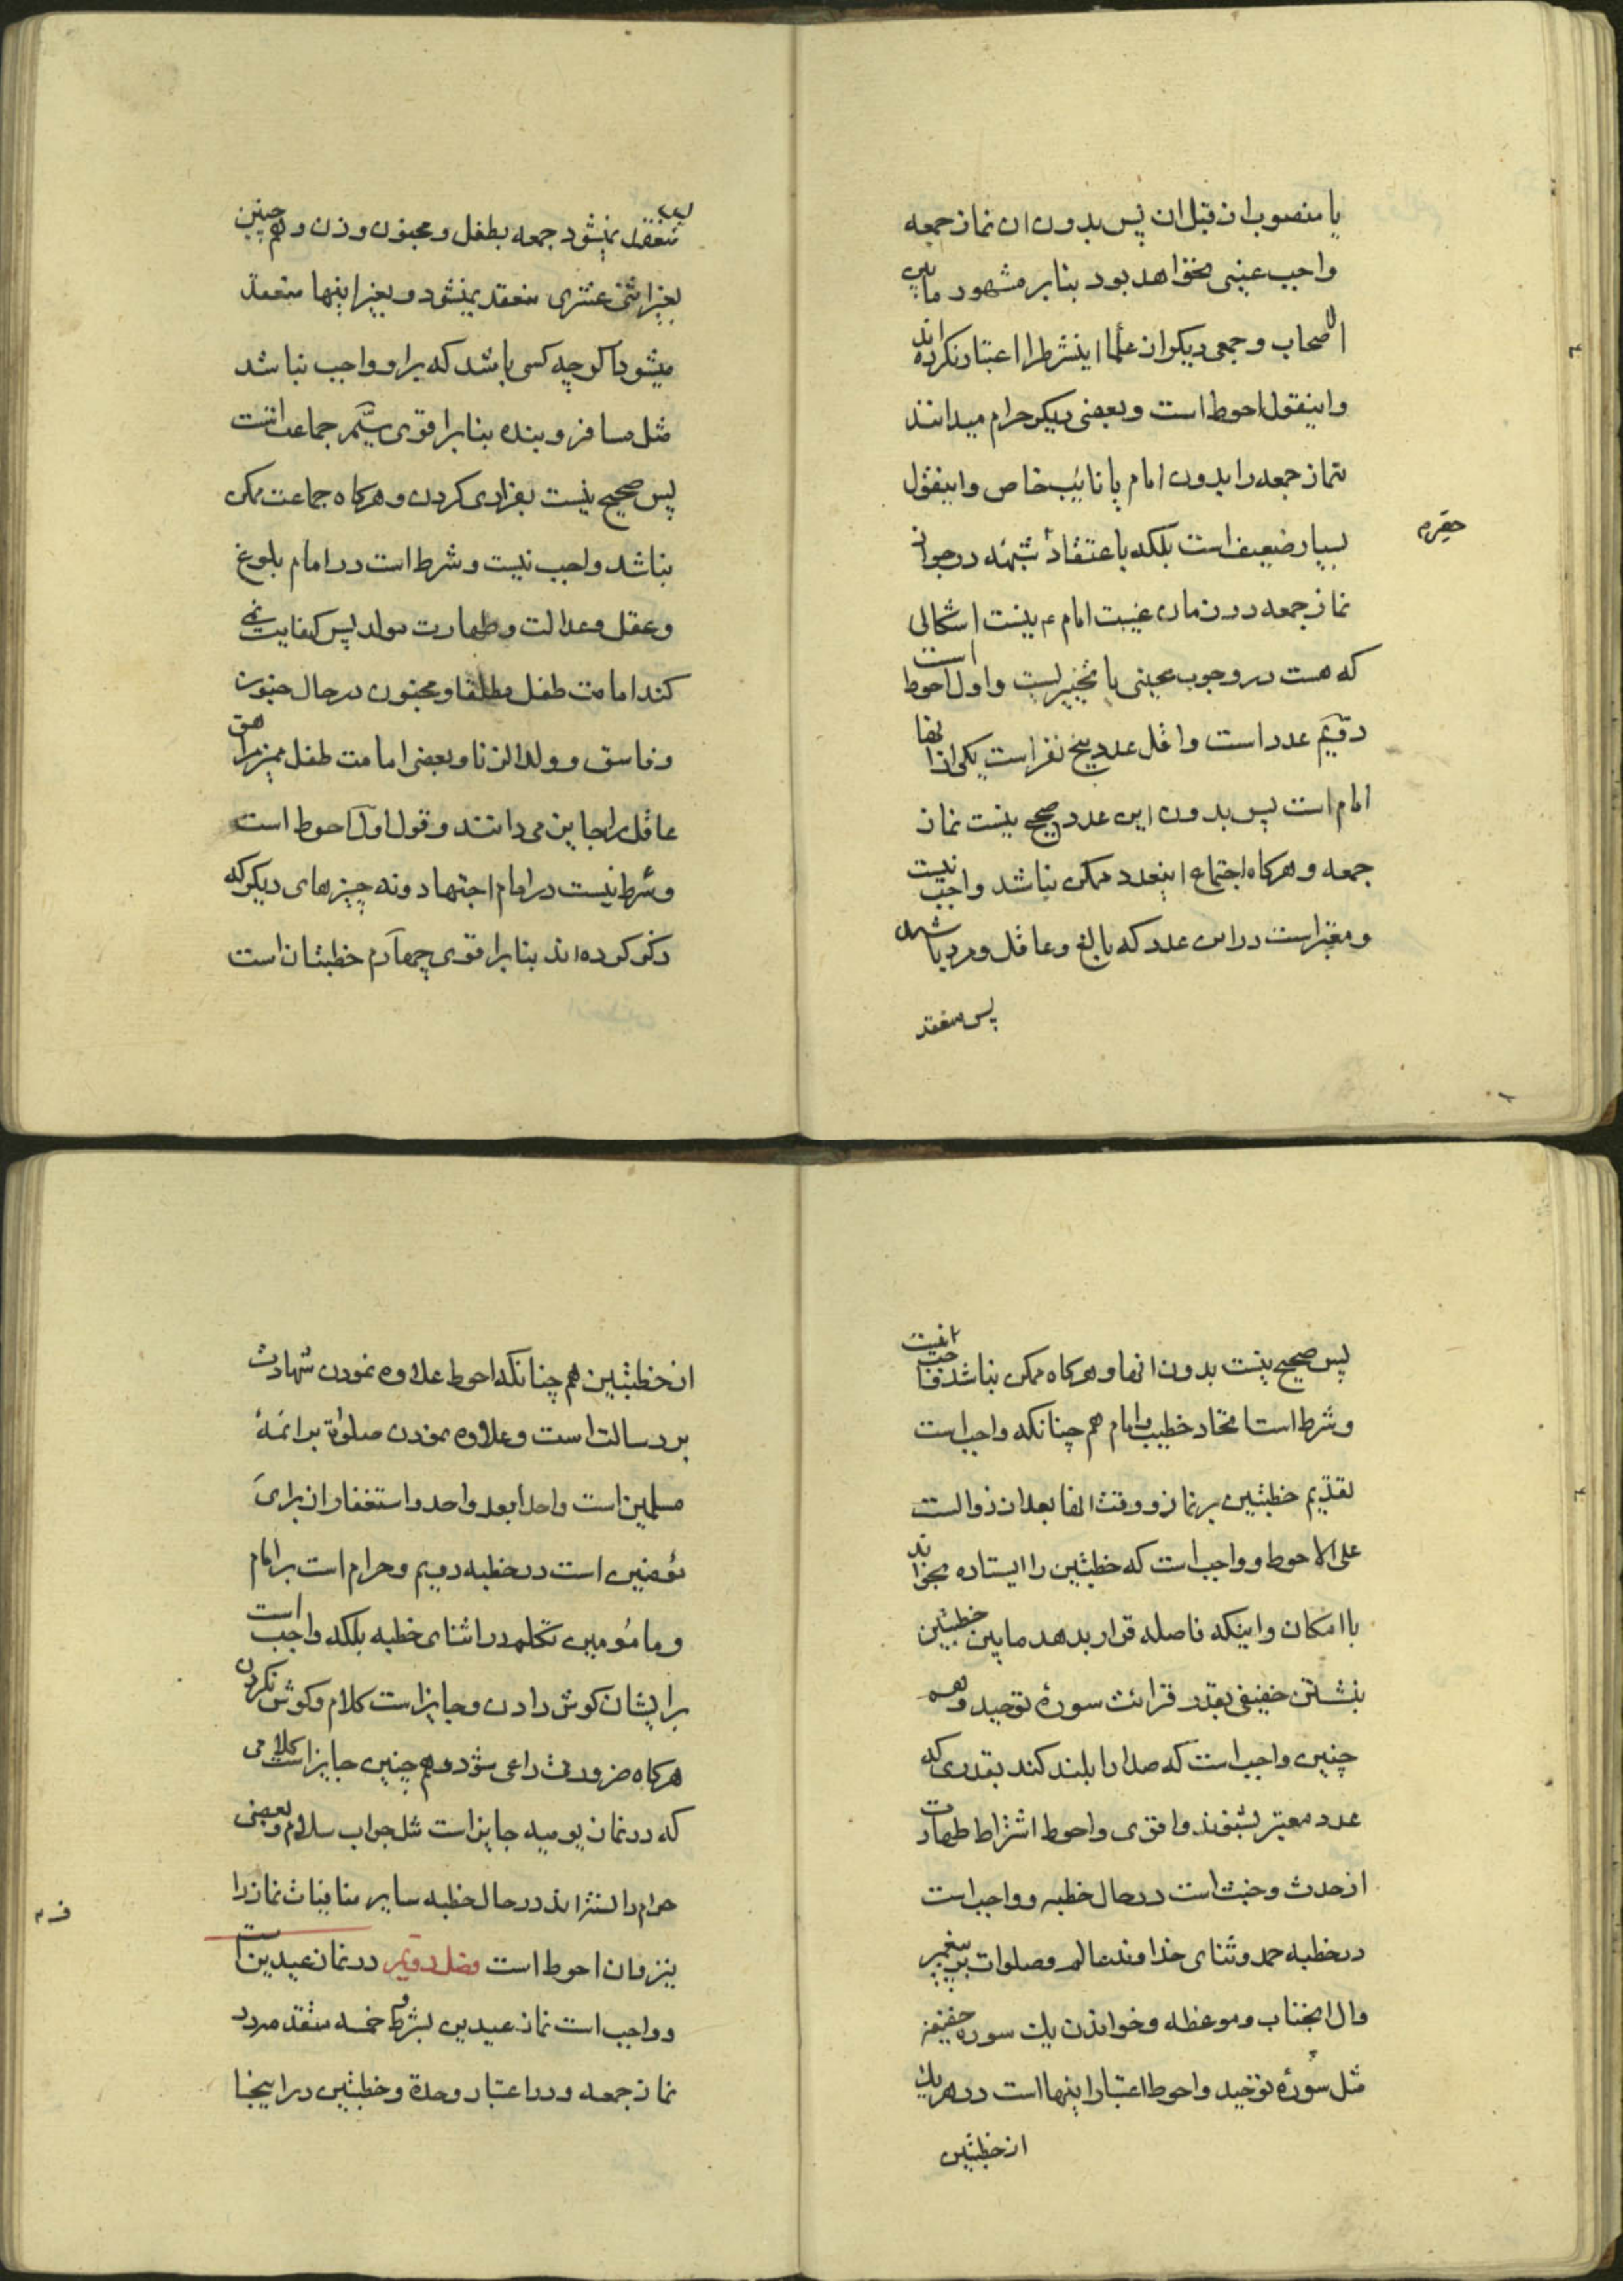 یا منصوب از قبل ان پس بدون ان نماز جمعه
واجب عینی نخواهد بود بنابر مشهور مابین
الاصحاب و جمعی دیکر از علما اینشرط را اعتبار نکرده اند
و اینقول احوط است و بعضی دیکر حرام میدانند
نماز جمعه را بدون امام یا نایب خاص و اینقول
بسیار ضعیف است بلکه باعتقاد شبهه در جواز
حقیرم
نماز جمعه در زمان غیبت امام ع نیست اشکالی
که هست در وجوب عینی یا تخییریست و اول احوط است
دویّم عدد است و اقل عدد پنج نفر است یکی از انها
امام است پس بدون این عدد صحیح نیست نماز
جمعه و هرکاه اجتماع اینعدد ممکن نباشد واجب نیست
و معتبر است در این عدد که بالغ و عاقل و مرد باشند
پس منعقد
پس منعقد نمیشود جمعه بطفل و مجنون و زن و هم چنین
بغیر اثنی عشری منعقد نمیشود و بغیر اینها منعقد
میشود اکرچه کسی باشد که بر او واجب نباشد
مثل مسافر و بنده بنابر اقوی سیّم جماعت است
پس صحیح نیست بفرادی کردن و هرکاه جماعت ممکن
نباشد واجب نیست و شرط است در امام بلوغ
و عقل و عدالت و طهارت مولد پس کفایت نمی
کند امامت طفل مطلقا و مجنون در حال جنون
و فاسق و ولد الزنا و بعضی امامت طفل ممیز مراهق
عاقل را جایز می دانند و قول اول احوط است
و شرط نیست در امام اجتهاد و نه چیزهای دیکر که
ذکر کرده اند بنابر اقوی چهارم خطبتان است
پس صحیح نیست بدون انها و هرکاه ممکن نباشد واجب نیست
و شرط است اتحاد خطیب و امام هم چنانکه واجب است
تقدیم خطبتین بر نماز و وقت انها بعد از زوالست
علی الاحوط و واجب است که خطبتین را ایستاده بخواند
با امکان و اینکه فاصله قرار بدهد مابین خطبتین
بنشستن خفیفی بقدر قرائت سورهٔ توحید و هم
چنین واجب است که صدا را بلند کند بقدری که
عدد معتبر بشنوند و اقوی و احوط اشتراط طهارت
از حدث و خبث است در حال خطبه و واجب است
در خطبه حمد و ثنای خداوند عالم و صلوات بر پیغمبر
و ال انجناب و موعظه و خواندن یک سوره خفیفه
مثل سورهٔ توحید و احوط اعتبار اینها است در هر یک
از خطبتین
از خطبتین هم چنانکه احوط علاوه نمودن شهادت
بر رسالت است و علاوه نمودن صلوٰة بر ائمهٔ
مسلمین است واحدا بعد واحد و استغفار از برای
مؤمنین است در خطبه دویم و حرام است بر امام
و مامومین تکلم در اثنای خطبه بلکه واجب است
بر ایشان کوش دادن و جایز است کلام و کوش نکردن
هرکاه ضرورت داعی شود و هم چنین جایز است کلامی
که در نماز یومیه جایز است مثل جواب سلام و بعضی
حرام دانسته اند در حال خطبه سایر منافیات نماز را
نیز و ان احوط است فصل دویّم در نماز عیدین است
و واجب است نماز عیدین بشروط خمسه متقدمه در
نماز جمعه و در اعتبار وحدة و خطبتین در اینجا